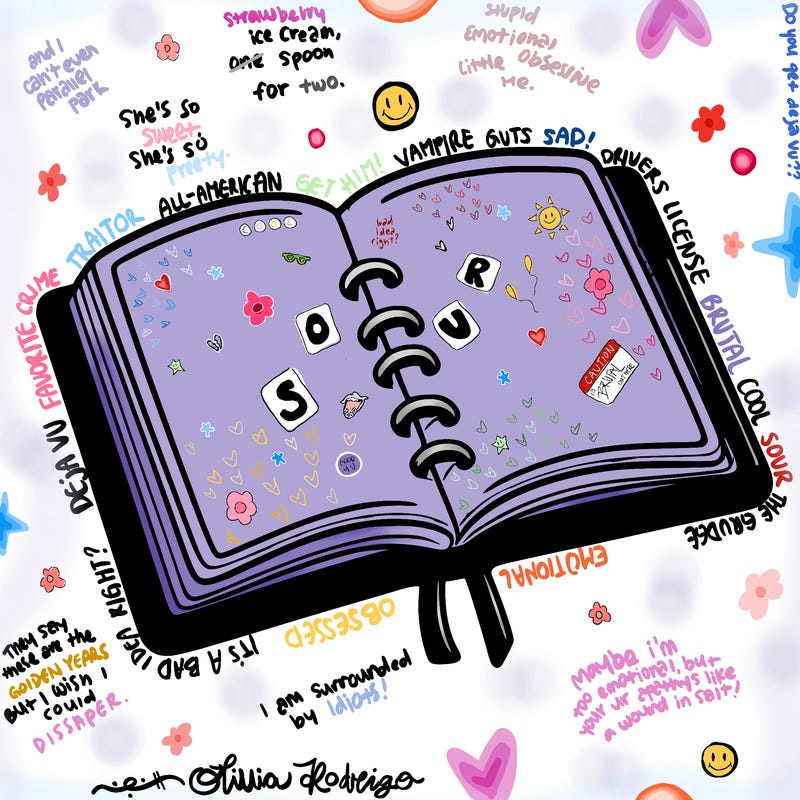 and I
can't even
parallel
park
strawberry
ice cream,
one spoon
for two.
stupid
Emotional,
little obsessive
me.
Do you get deja vu??
She's so
sweet
She's so
pretty.
TRAITOR ALL-AMERICAN GET HIM! VAMPIRE GUTS SAD!
DRIVERS LICENSE BRUTAL COOL SOUR THE GRUDGE
FAVORITE CRIME
DEJA VU
IT'S A BAD IDEA RIGHT?
OBSESSED
EMOTIONAL
bad
idea
right?
S O U R
good
4 U
CAUTION
BRUTAL
They say
these are the
GOLDEN YEARS
But I wish I
could
DISSAPER.
I am surrounded
by Idiots!
Maybe i'm
too emotional, but
your ur apathys like
a wound in salt!
Olivia Rodrigo